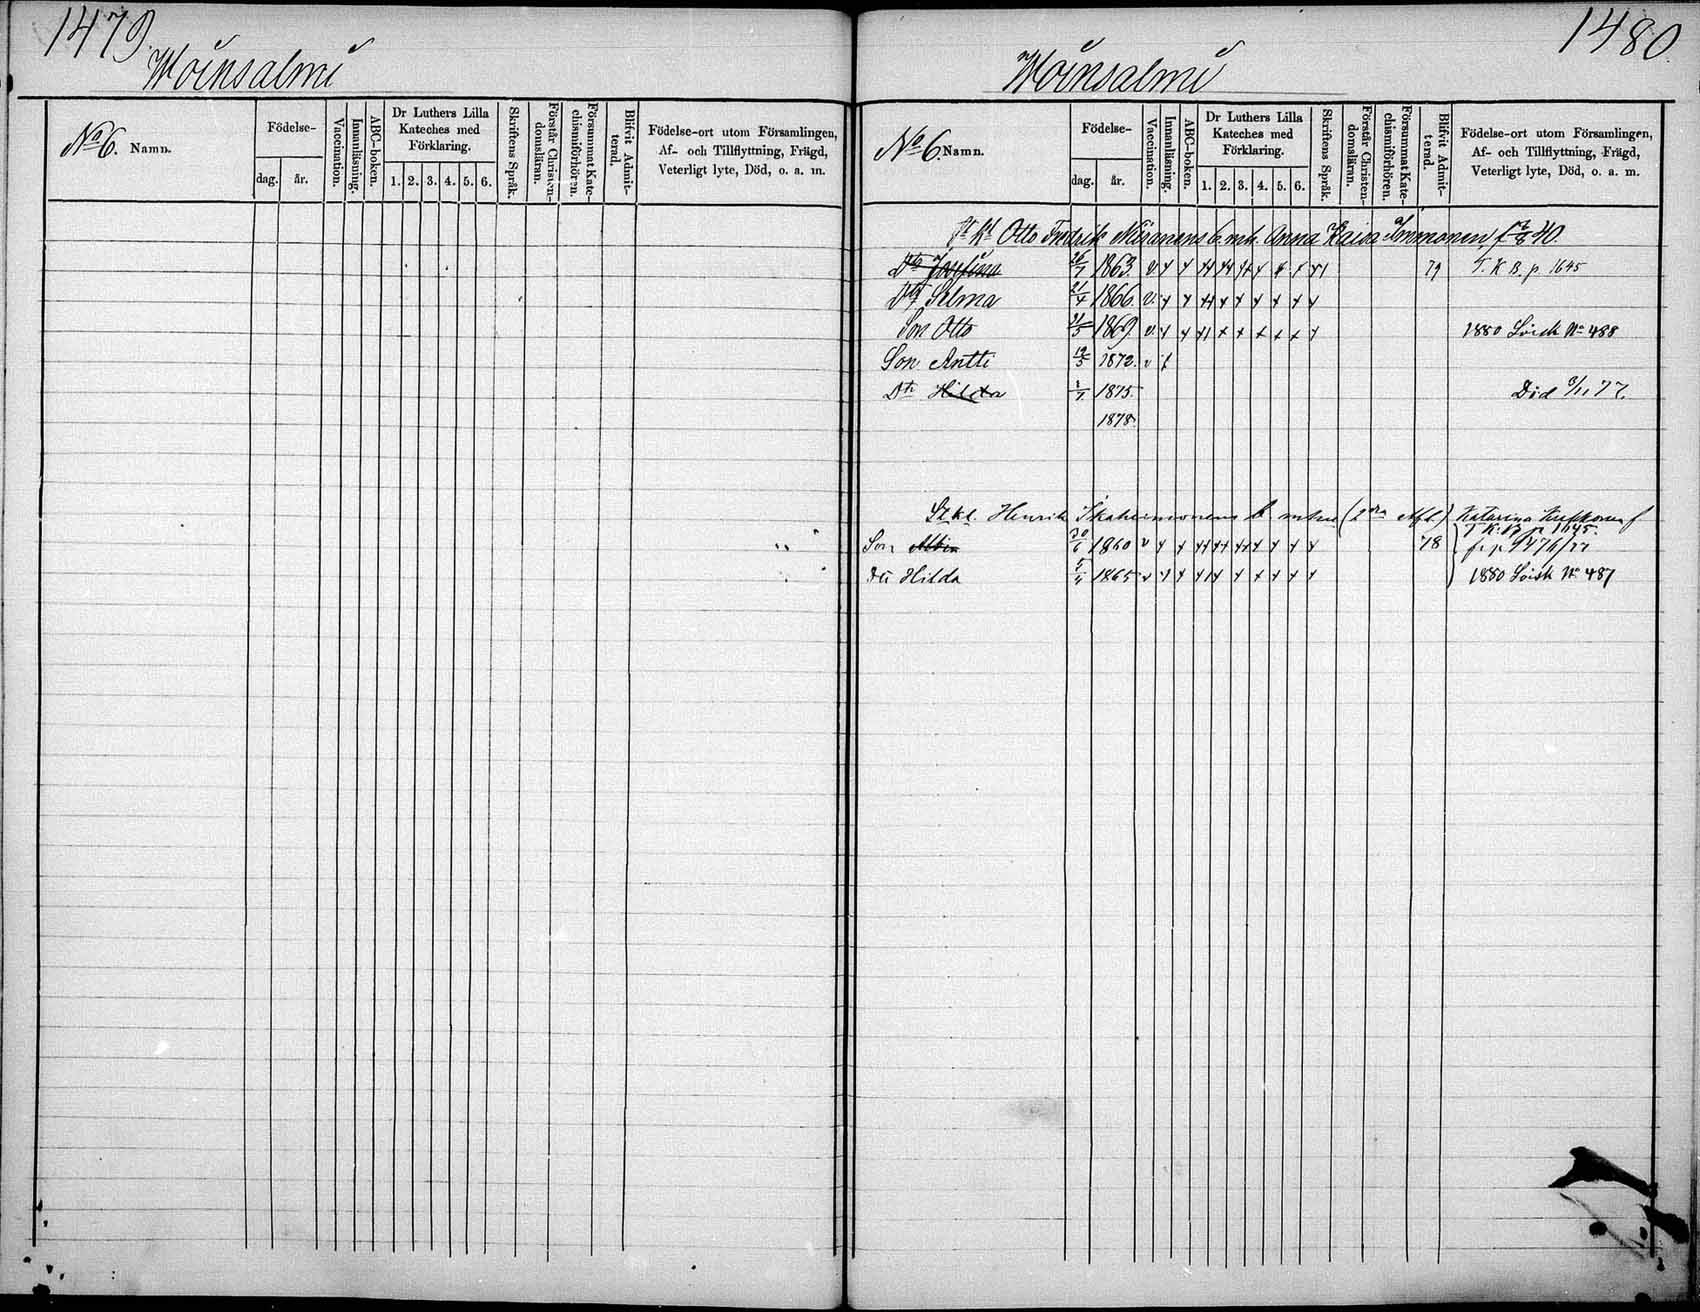 1479.
Woinsalmi
No 6. Namn.
Födelse-
dag. år.
Vaccination.
Innanläsning.
ABC-boken.
Dr Luthers Lilla
Kateches med
Förklaring.
1. 2. 3. 4. 5. 6.
Skriftens Språk.
Förstår Christen-
domsläran.
Försummat Kate-
chismiförhören.
Blifvit Admit-
terad.
Födelse-ort utom Församlingen,
Af- och Tillflyttning, Frägd,
Veterligt lyte, Död, o. a. m.
1480.
Woinsalmi
No 6. Namn.
Födelse-
dag. år.
Vaccination.
Innanläsning.
ABC-boken.
Dr Luthers Lilla
Kateches med
Förklaring.
1. 2. 3. 4. 5. 6.
Skriftens Språk.
Förstår Christen-
domsläran.
Försummat Kate-
chismiförhören.
Blifvit Admit-
terad.
Födelse-ort utom Församlingen,
Af- och Tillflyttning, Frägd,
Veterligt lyte, Död, o. a. m.
Otto Fredrik b. m. h. Anna Kaisa Immonen, f 40.
Dtr Josefina 1863. v 79 T. K. B. p. 1645
Dtr Selma 21/4 1866 v.
Son Otto 1869 v 1880 Lösk No 488
Son Antti 1872. v
Dtr Hilda 1/1 1875. Död 77.
1878.
Henrik b. (2dra Afd.) Katarina f
T. K. B. p. 1645.
Son Albin 30/6 1860 v 78
Dtr Hilda 1865 v 1880 Lösk No 487